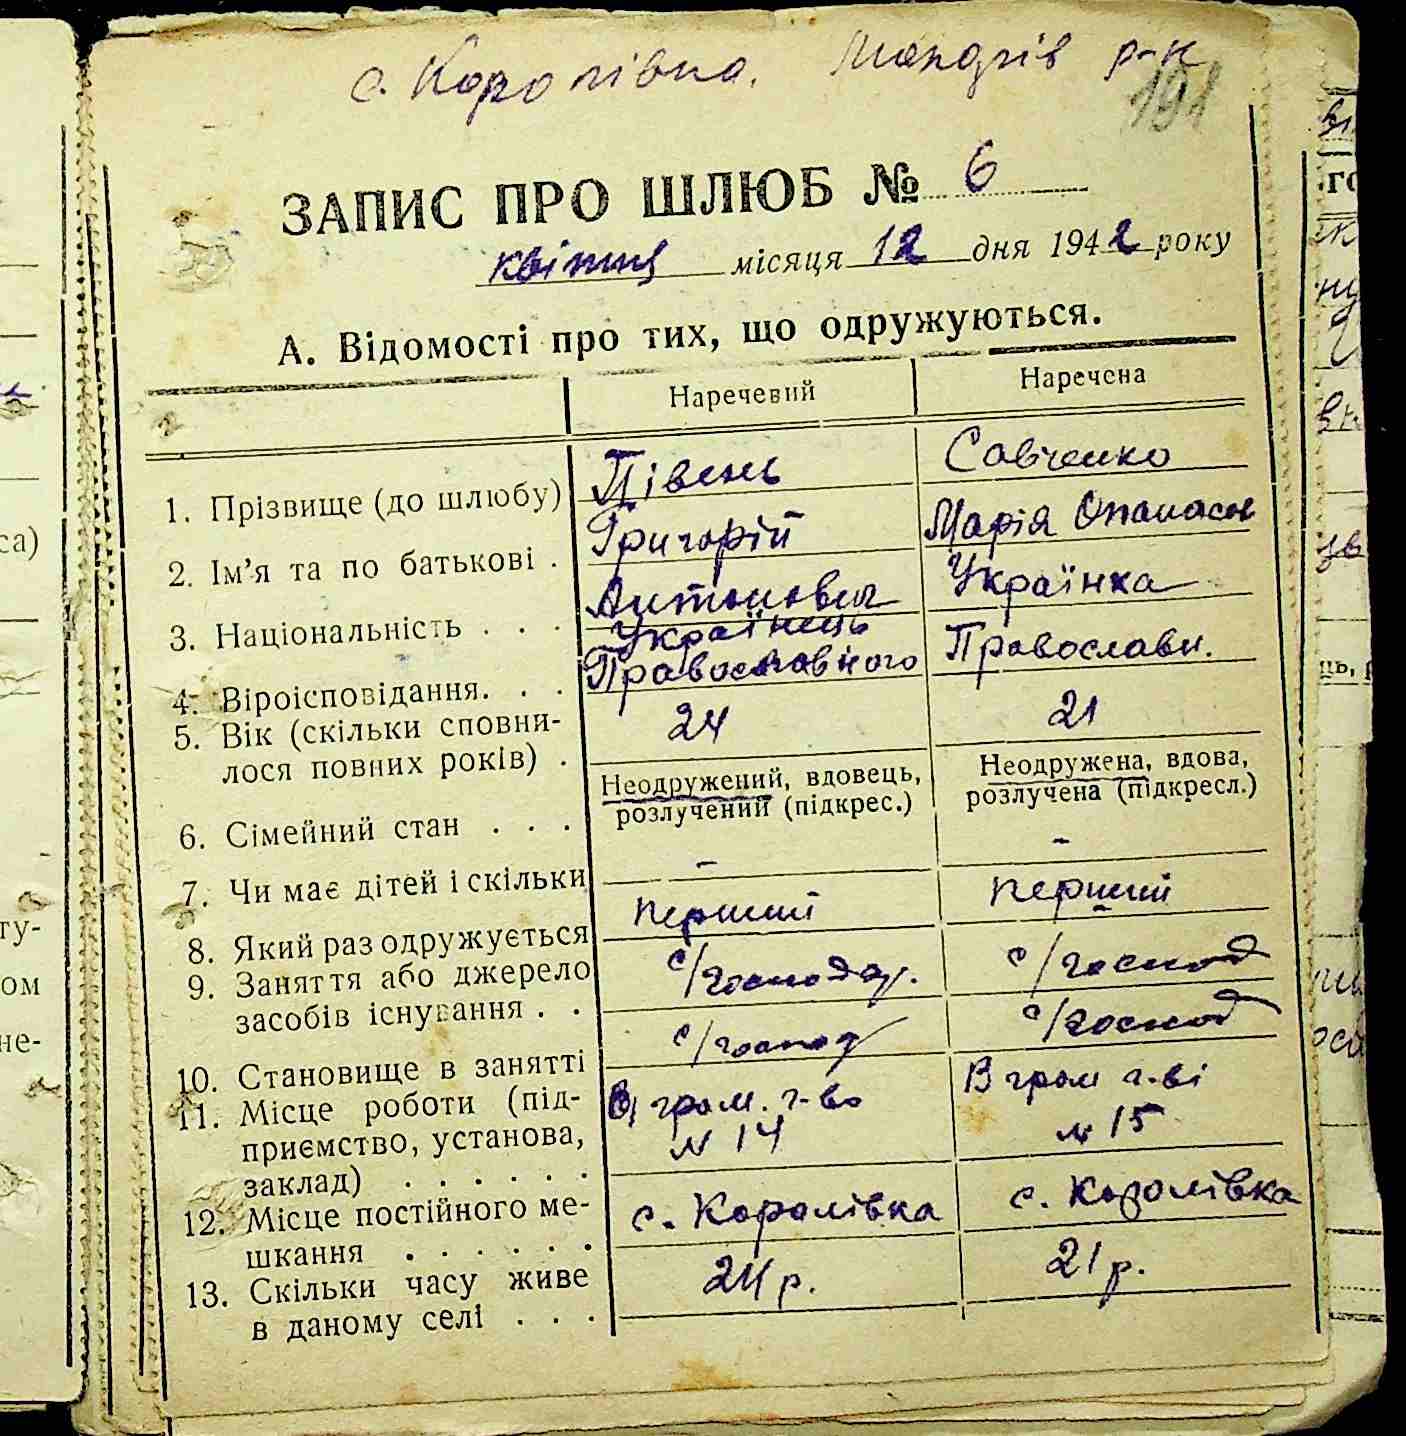 с. Королівка. Макарів р-н
191
ЗАПИС ПРО ШЛЮБ № 6
квітня місяця 12 дня 1942 року
А. Відомості про тих, що одружуються.
Наречевий Наречена
1. Прізвище (до шлюбу) Півень Савченко
2. Ім’я та по батькові . Григорій Антонович Марія Опанасов
3. Національність . . . Українець Українка
4. Віроісповідання. . . Православного Православн.
5. Вік (скільки сповни-
лося повних років) . 24 21
Неодружений, вдовець, Неодружена, вдова,
розлучений (підкрес.) розлучена (підкресл.)
6. Сімейний стан . . .
7. Чи має дітей і скільки - -
8. Який раз одружується перший перший
9. Заняття або джерело
засобів існування . . с/господар. с/господ
10. Становище в занятті с/господ с/господ
11. Місце роботи (під-
приємство, установа,
заклад) . . . . . . В гром. г-во № 14 В гром г-ві № 15
12. Місце постійного ме-
шкання . . . . . . с. Королівка с. Королівка
13. Скільки часу живе
в даному селі . . . 24 р. 21 р.